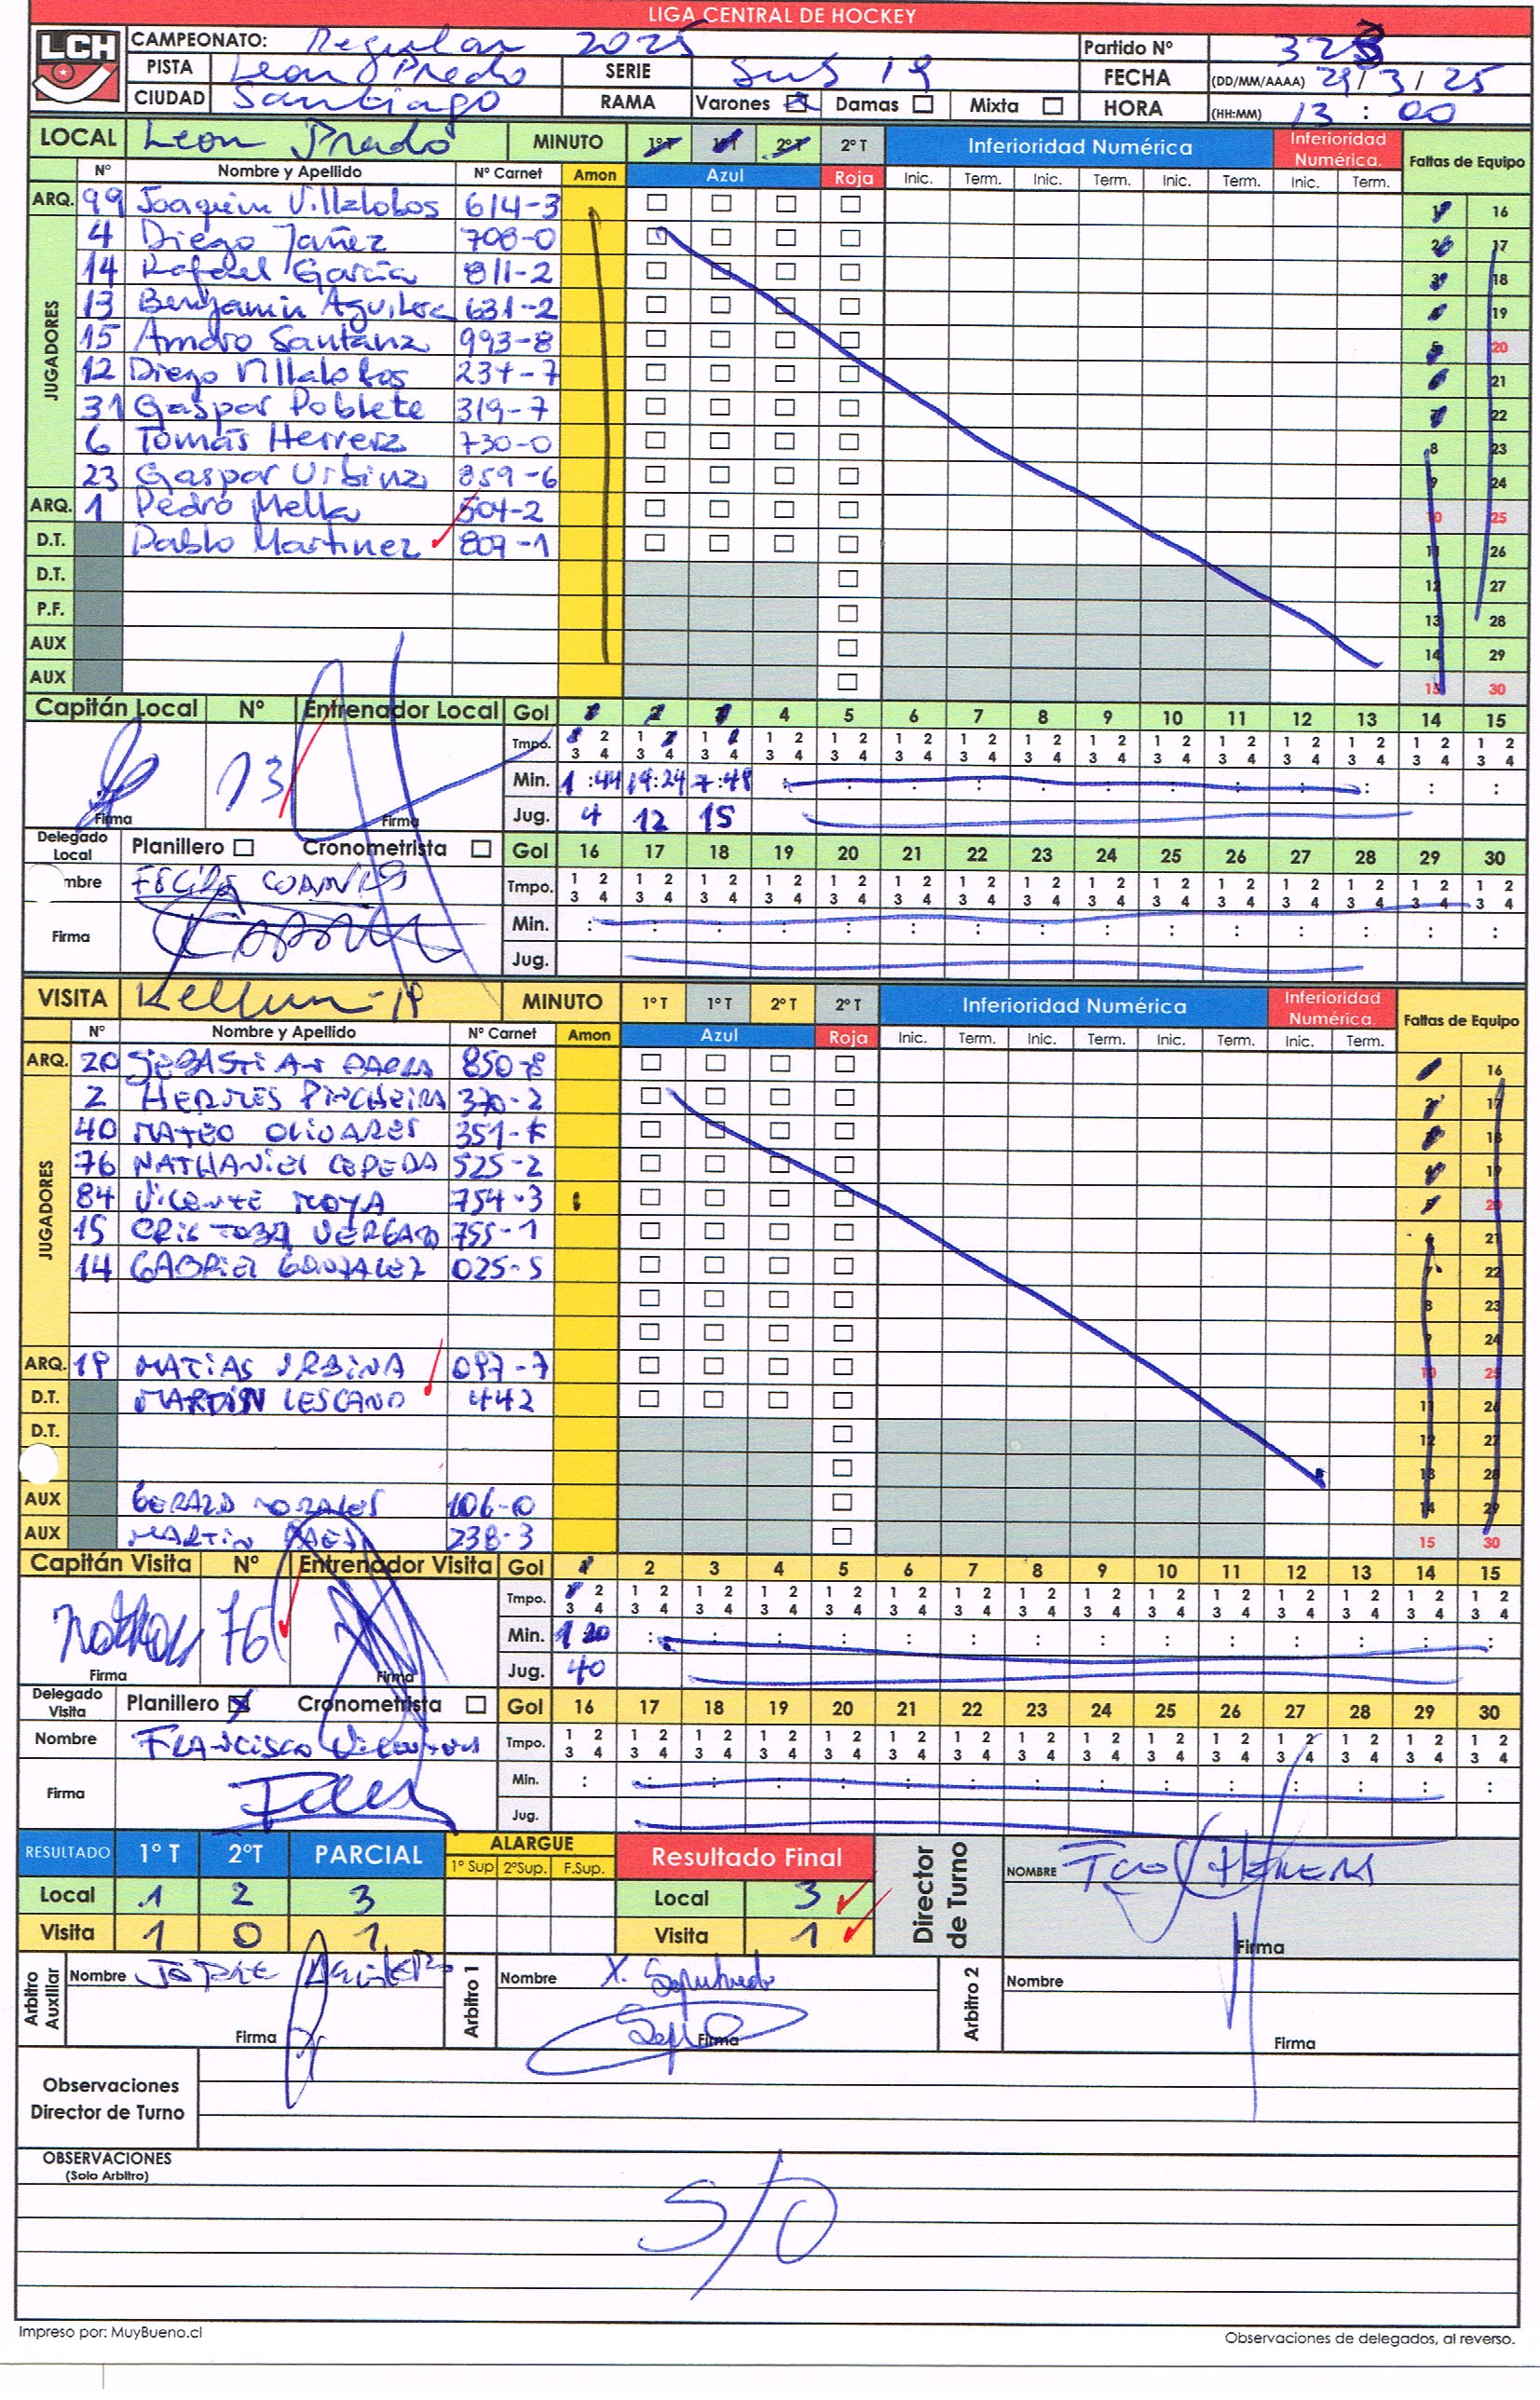 LIGA CENTRAL DE HOCKEY
LCH
CAMPEONATO: Regular 2025 Partido Nº
PISTA Leon Prado SERIE Sub 19 FECHA (DD/MM/AAAA) 29/3/25
CIUDAD Santiago RAMA Varones Damas Mixta HORA (HH:MM) 13:00
LOCAL Leon Prado MINUTO 1º T 1º T 2º T 2º T Inferioridad Numérica Inferioridad Numérica. Faltas de Equipo
Nº Nombre y Apellido Nº Carnet Amon Azul Roja Inic. Term. Inic. Term. Inic. Term. Inic. Term.
ARQ. 99 Joaquin Villalobos 614-3 1 16
JUGADORES
4 Diego Yañez 708-0 2 17
14 Rafael García 811-2 3 18
13 Benjamin Aguilera 631-2 4 19
15 Amaro Santana 993-8 5 20
12 Diego Villalobos 237-7 6 21
31 Gaspar Poblete 319-7 7 22
6 Tomás Herrera 730-0 8 23
23 Gaspar Urbina 859-6 9 24
ARQ. 1 Pedro Mella 504-2 10 25
D.T. Pablo Martinez 809-1 11 26
D.T. 12 27
P.F. 13 28
AUX 14 29
AUX 15 30
Capitán Local Nº Entrenador Local Gol 1 2 3 4 5 6 7 8 9 10 11 12 13 14 15
Tmpo. 1 2 1 2 1 2 1 2 1 2 1 2 1 2 1 2 1 2 1 2 1 2 1 2 1 2 1 2 1 2
3 4 3 4 3 4 3 4 3 4 3 4 3 4 3 4 3 4 3 4 3 4 3 4 3 4 3 4 3 4
13 Min. 1:44 19:24 7:48
Firma Firma Jug. 4 12 15
Delegado Local Planillero Cronometrista Gol 16 17 18 19 20 21 22 23 24 25 26 27 28 29 30
mbre Tmpo. 1 2 1 2 1 2 1 2 1 2 1 2 1 2 1 2 1 2 1 2 1 2 1 2 1 2 1 2 1 2
3 4 3 4 3 4 3 4 3 4 3 4 3 4 3 4 3 4 3 4 3 4 3 4 3 4 3 4 3 4
Firma Min.
Jug.
VISITA Kellun-19 MINUTO 1º T 1º T 2º T 2º T Inferioridad Numérica Inferioridad Numérica. Faltas de Equipo
Nº Nombre y Apellido Nº Carnet Amon Azul Roja Inic. Term. Inic. Term. Inic. Term. Inic. Term.
ARQ. 20 SEBASTIAN PARRA 850-8 1 16
JUGADORES
2 HERMES PINCHEIRA 370-2 2 17
40 MATEO OLIVARES 351-K 3 18
76 NATHANIEL CEPEDA 525-2 4 19
84 VICENTE MOYA 754-3 5 20
15 755-1 6 21
14 GABRIEL GONZALEZ 025-5 7 22
8 23
9 24
ARQ. 19 MATIAS URBINA 097-7 10 25
D.T. MARTIN LESCANO 442 11 26
D.T. 12 27
13 28
AUX MORALES 106-0 14 29
AUX MARTIN 238-3 15 30
Capitán Visita Nº Entrenador Visita Gol 1 2 3 4 5 6 7 8 9 10 11 12 13 14 15
Tmpo. 1 2 1 2 1 2 1 2 1 2 1 2 1 2 1 2 1 2 1 2 1 2 1 2 1 2 1 2 1 2
3 4 3 4 3 4 3 4 3 4 3 4 3 4 3 4 3 4 3 4 3 4 3 4 3 4 3 4 3 4
76 Min.
Firma Firma Jug. 40
Delegado Visita Planillero Cronometrista Gol 16 17 18 19 20 21 22 23 24 25 26 27 28 29 30
Nombre Francisco Tmpo. 1 2 1 2 1 2 1 2 1 2 1 2 1 2 1 2 1 2 1 2 1 2 1 2 1 2 1 2 1 2
3 4 3 4 3 4 3 4 3 4 3 4 3 4 3 4 3 4 3 4 3 4 3 4 3 4 3 4 3 4
Firma Min.
Jug.
RESULTADO 1º T 2ºT PARCIAL ALARGUE 1º Sup 2ºSup. F.Sup. Resultado Final Director de Turno NOMBRE
Local 1 2 3 Local 3
Visita 1 0 1 Visita 1 Firma
Arbitro Auxiliar Nombre Arbitro 1 Nombre X. Sepulveda Arbitro 2 Nombre
Firma Firma Firma
Observaciones
Director de Turno
OBSERVACIONES
(Solo Arbitro)
S/O
Impreso por: MuyBueno.cl Observaciones de delegados, al reverso.